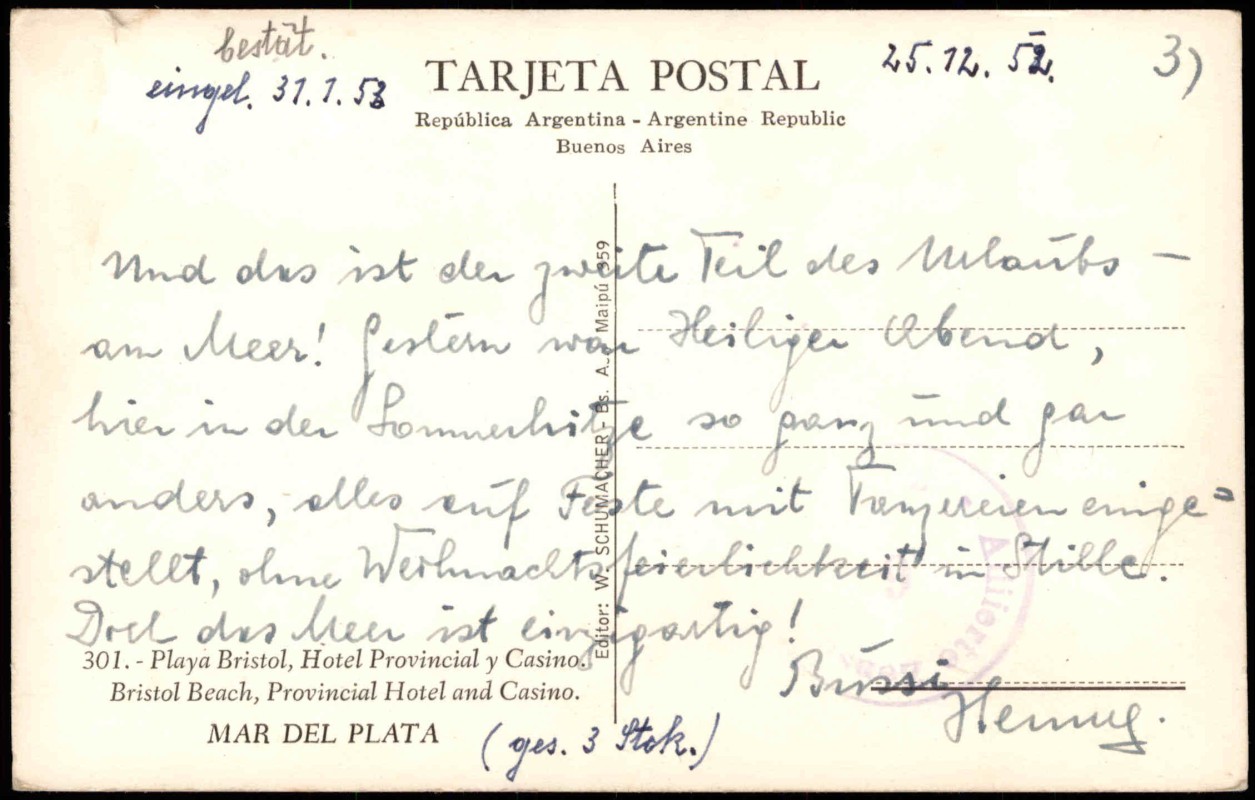 bestät.
eingel. 31.1.53
25.12.52.
3)
TARJETA POSTAL
República Argentina - Argentine Republic
Buenos Aires
Und das ist der zweite Teil des Urlaubs –
am Meer! Gestern war Heiliger Abend,
hier in der Sommerhitze so ganz und gar
anders, alles auf Feste mit Tanzereien einge=
stellt, ohne Weihnachtsfeierlichkeit in Stille.
Doch das Meer ist einzigartig!
Bussi
Henny.
Editor: W. SCHUMACHER - Bs. As. Maipú 359
301. - Playa Bristol, Hotel Provincial y Casino.
Bristol Beach, Provincial Hotel and Casino.
MAR DEL PLATA
(ges. 3 Stck.)